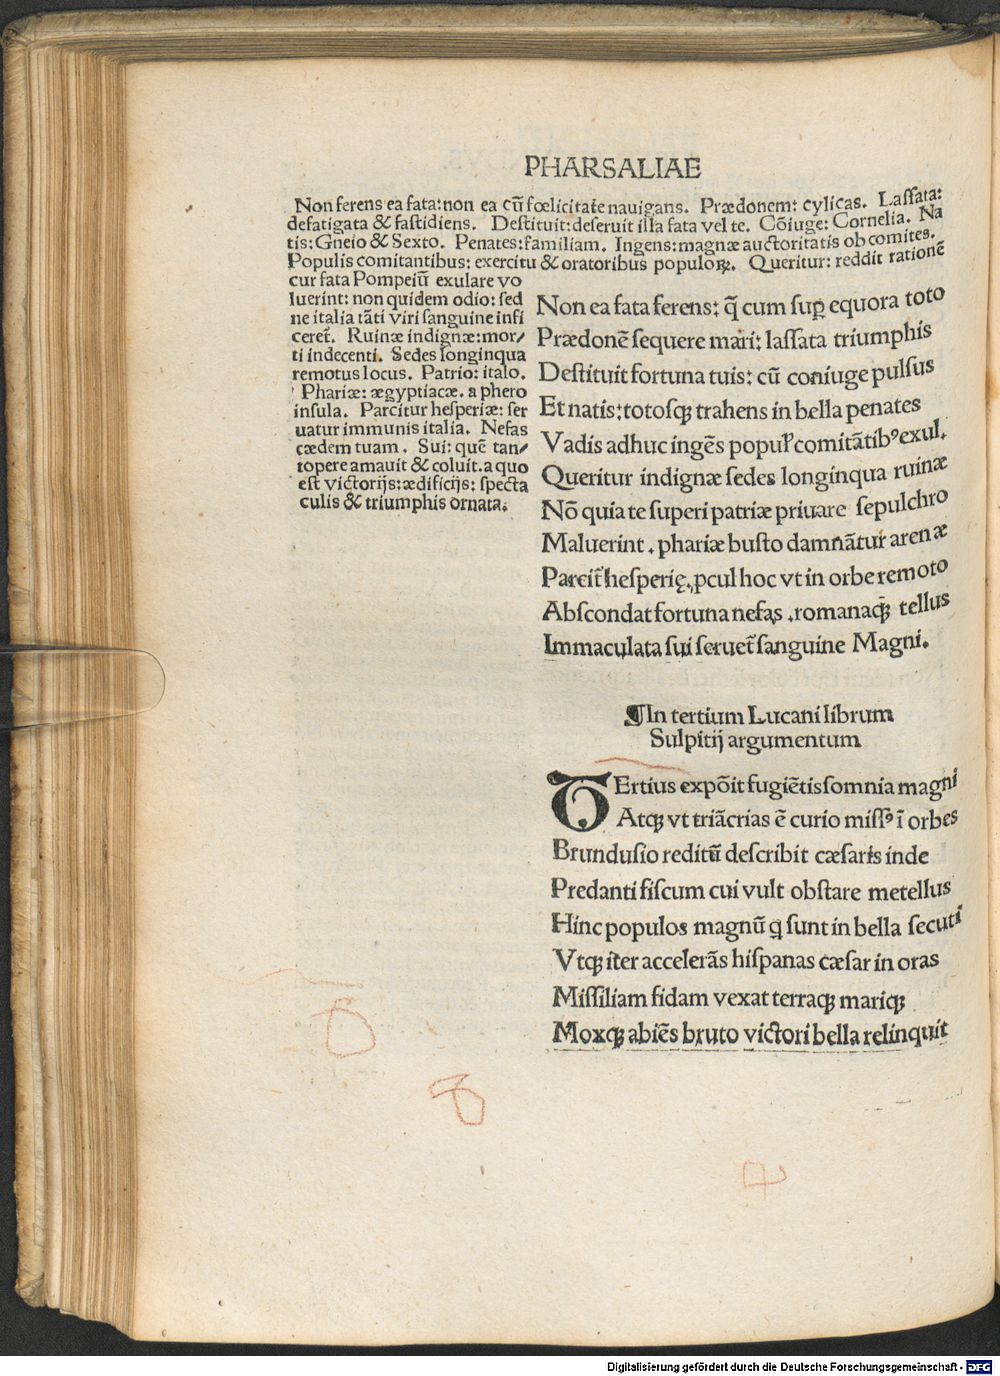 PHARSALIAE
Non ferens ea fata: non ea cū fœlicitate nauigans. Prædonem: cylicas. Lassata:
defatigata & fastidiens. Destituit: deseruit illa fata vel te. Cōiuge: Cornelia. Na
tis: Gneio & Sexto. Penates: familiam. Ingens: magnæ auctoritatis ob comites.
Populis comitantibus: exercitu & oratoribus populoꝝ. Queritur: reddit rationē
cur fata Pompeiū exulare vo
luerint: non quidem odio: sed
ne italia tāti viri sanguine infi
ceret̄. Ruinæ indignæ: mor/
ti indecenti. Sedes longinqua
remotus locus. Patrio: italo.
Phariæ: ægyptiacæ. a phero
insula. Parcitur hesperiæ: ser
uatur immunis italia. Nefas
cædem tuam. Sui: quē tan/
topere amauit & coluit. a quo
est victorijs: ædificijs: specta
culis & triumphis ornata.
Non ea fata ferens: q̄ cum suꝑ equora toto
Prædonē sequere mari: lassata triumphis
Destituit fortuna tuis: cū coniuge pulsus
Et natis: totosqꝫ trahens in bella penates
Vadis adhuc ingēs popul̄ comitātibꝰ exul.
Queritur indignæ sedes longinqua ruinæ
Nō quia te superi patriæ priuare sepulchro
Maluerint. phariæ busto damnātur arenæ
Parcit̄ hesperię. ꝓcul hoc vt in orbe remoto
Abscondat fortuna nefas. romanaqꝫ tellus
Immaculata sui seruet̄ sanguine Magni.
¶In tertium Lucani librum
Sulpitij argumentum
TErtius expōit fugiētis somnia magni
Atqꝫ vt triācrias ē curio missꝰ ī orbes
Brundusio reditū describit cæsaris inde
Predanti fiscum cui vult obstare metellus
Hinc populos magnū q̄ sunt in bella secuti
Vtqꝫ iter accelerās hispanas cæsar in oras
Missiliam fidam vexat terraqꝫ mariqꝫ
Moxqꝫ abiēs bruto victori bella relinquit
Digitalisierung gefördert durch die Deutsche Forschungsgemeinschaft - DFG